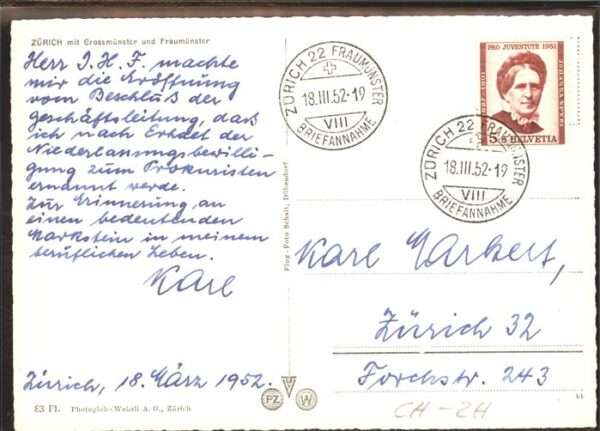 ZÜRICH mit Grossmünster und Fraumünster
Herr J. H. F. machte
mir die Eröffnung
vom Beschluß der
geschäftsleitung, daß
ich nach Erhalt der
Niederlassungsbewilli-
gung zum Prokuristen
ernannt werde.
Zur Erinnerung, an
einen bedeutenden
Markstein in meinem
beruflichen Leben.
Karl
Zürich, 18. März 1952.
83 Fl. Photoglob-Wehrli A. G., Zürich
Flug-Foto Schulz, Dübendorf
PZ W
ZÜRICH 22 FRAUMÜNSTER
18.III.52-19
VIII
BRIEFANNAHME
PRO JUVENTUTE 1951
JOHANNA SPYRI
1827-1901
5+5 HELVETIA
ZÜRICH 22 FRAUMÜNSTER
18.III.52-19
VIII
BRIEFANNAHME
Karl Markert,
Zürich 32
Forchstr. 243
CH-ZH